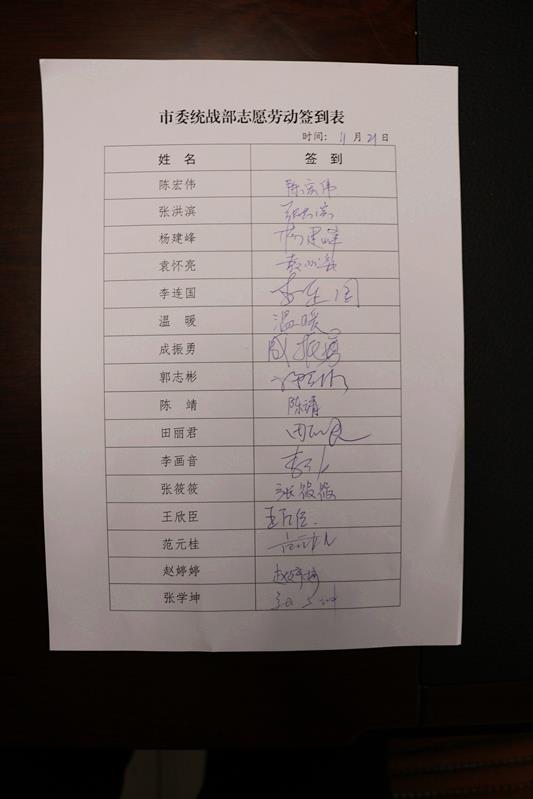 市委统战部志愿劳动签到表
时间： 11 月 21 日
姓 名 签 到
陈宏伟 陈宏伟
张洪滨
杨建峰 杨建峰
袁怀亮
李连国 李连国
温 暖 温暖
成振勇 成振勇
郭志彬
陈 靖 陈靖
田丽君
李画音
张筱筱 张筱筱
王欣臣
范元桂
赵婷婷 赵婷婷
张学坤